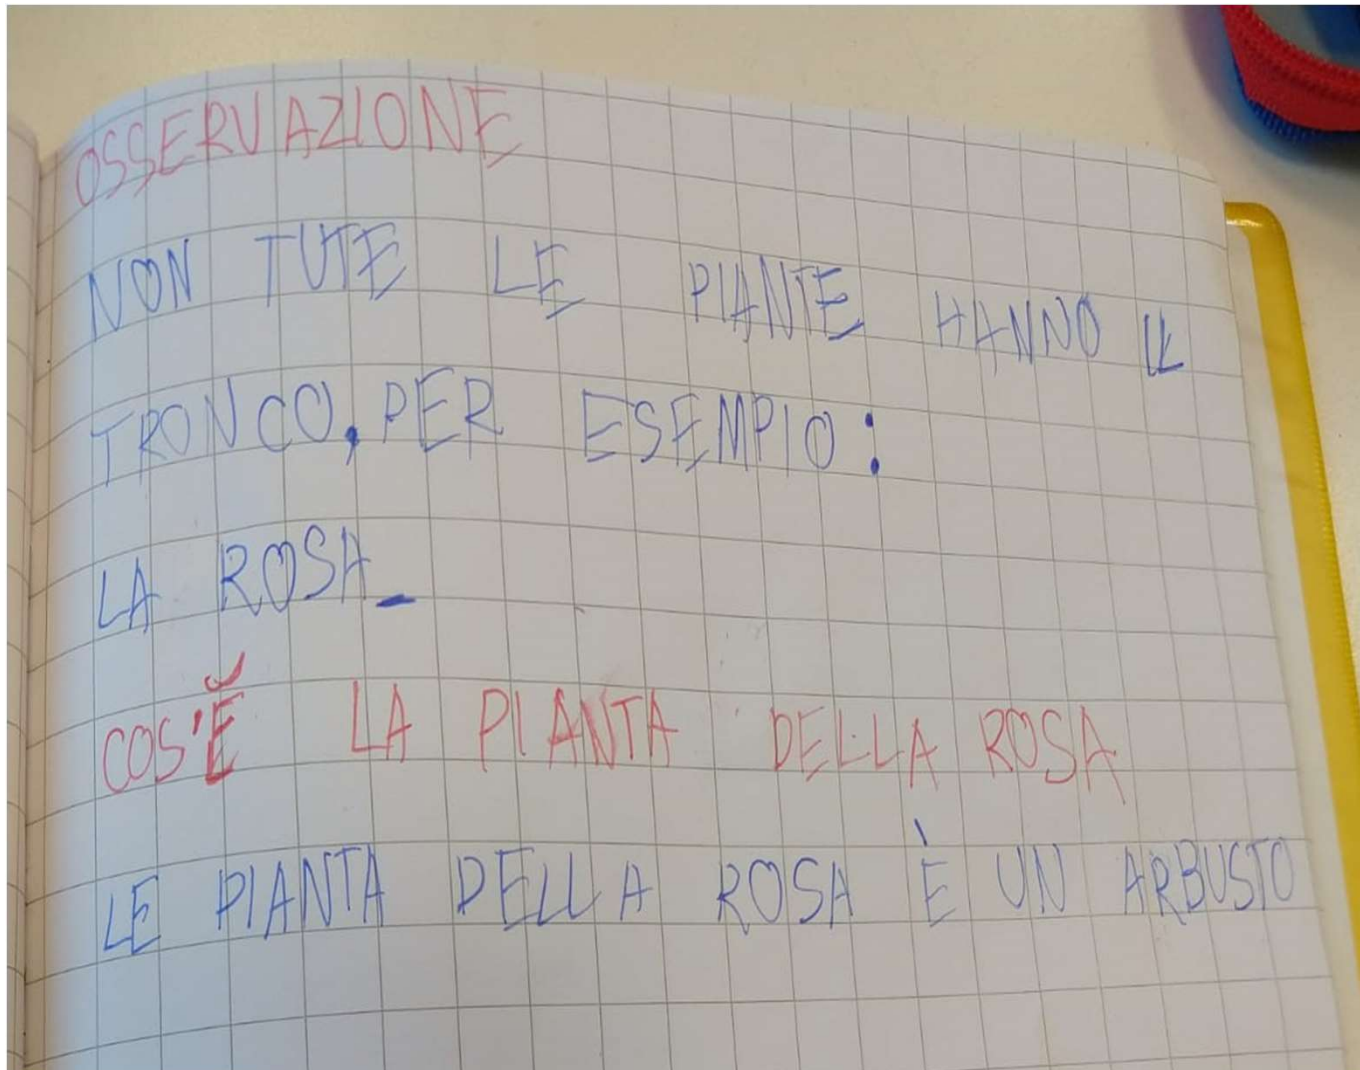 OSSERVAZIONE
NON TUTE LE PIANTE HANNO IL
TRONCO, PER ESEMPIO:
LA ROSA_
COS'È LA PIANTA DELLA ROSA
LE PIANTA DELLA ROSA È UN ARBUSTO